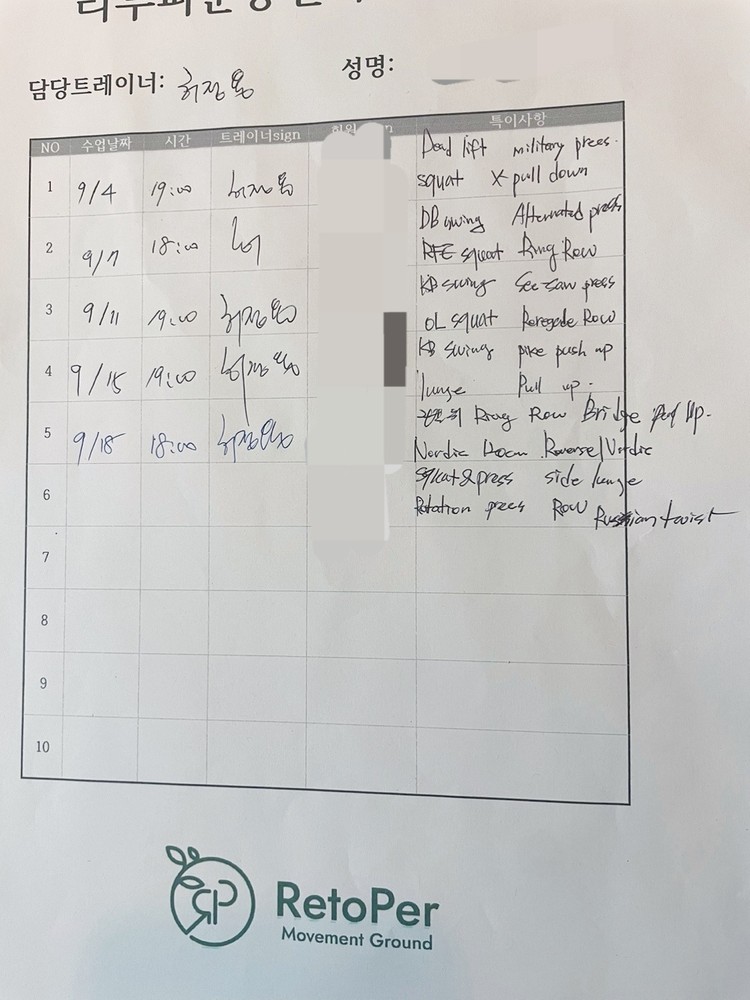 담당트레이너: 허정용 성명:
NO 수업날짜 시간 트레이너sign 특이사항
Dead lift military prees.
1 9/4 19:00 허정용
squat X-pull down
DB swing Alternated press
2 9/7 18:00 허
RFE squat Ring Row
KB swing See-saw press
3 9/11 19:00 허정용
OL squat Renegade Row
KB swing pike push up
4 9/15 19:00 허정용
lunge Pull up.
Ring Row Bridge Pull Up.
5 9/18 18:00 허정용
Nordic Down Reverse Nordic
squat&press side lunge
6
Rotation press Row Russian twist
7
8
9
10
RetoPer
Movement Ground